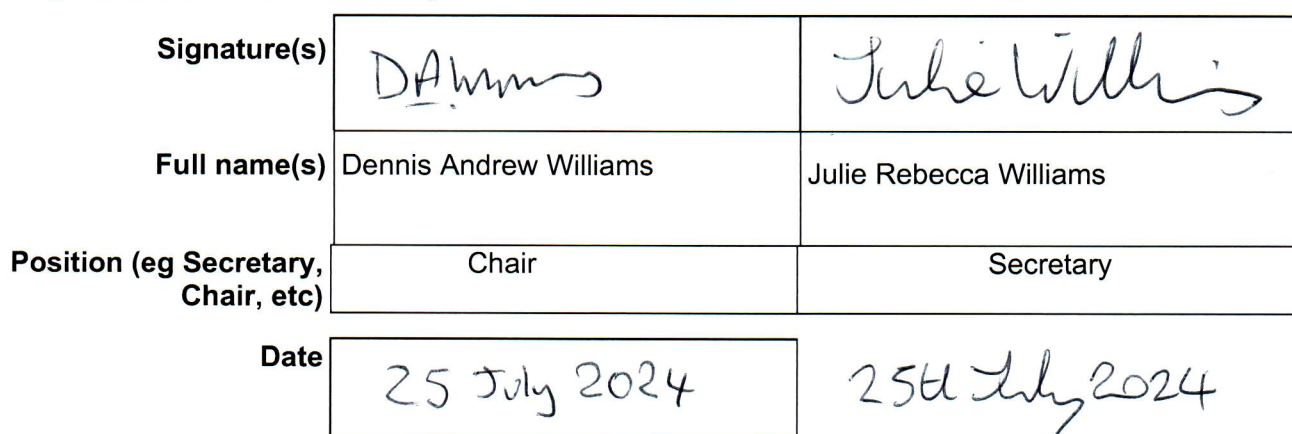 Signature(s) DAWms Julie Williams
Full name(s) Dennis Andrew Williams Julie Rebecca Williams
Position (eg Secretary, Chair Secretary
Chair, etc)
Date 25 July 2024 25th July 2024